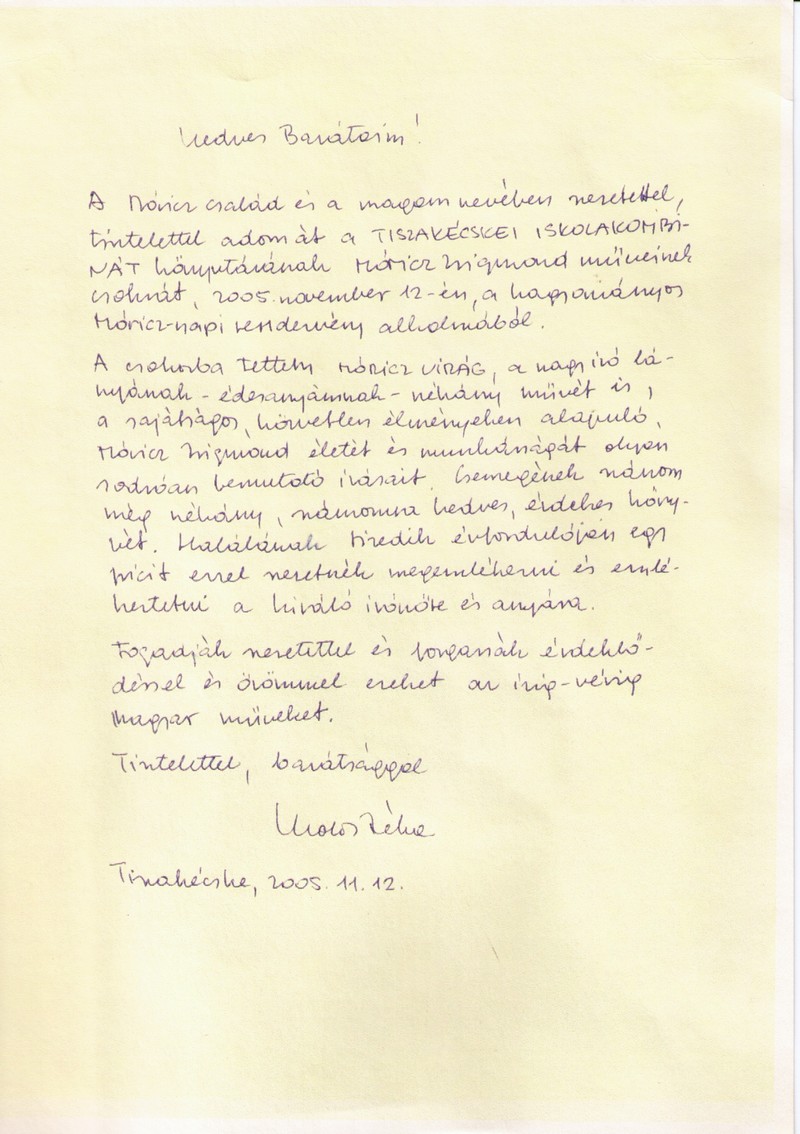 Kedves Barátaim!
A Móricz család és a magam nevében szeretettel,
tisztelettel adom át a TISZAKÉCSKEI ISKOLAKOMBI-
NÁT könyvtárának Móricz Zsigmond műveinek
csokrát, 2005. november 12-én, a hagyományos
Móricz-napi rendezvény alkalmából.
A csokorba tettem MÓRICZ VIRÁG, a nagy író lá-
nyának - édesanyámnak - néhány művét is,
a sajátságos, közvetlen élményeken alapuló,
Móricz Zsigmond életét és munkásságát olyan
sodróan bemutató írásait. Csemegének szánom
még néhány, számomra kedves, érdekes köny-
vét. Halálának tizedik évfordulóján egy
picit ezzel szeretnék megemlékezni és emlé-
keztetni a kiváló írónőre és anyára.
Fogadják szeretettel és forgassák érdeklő-
déssel és örömmel ezeket az ízig-vérig
magyar műveket.
Tisztelettel, barátsággal
Tiszakécske, 2005. 11. 12.